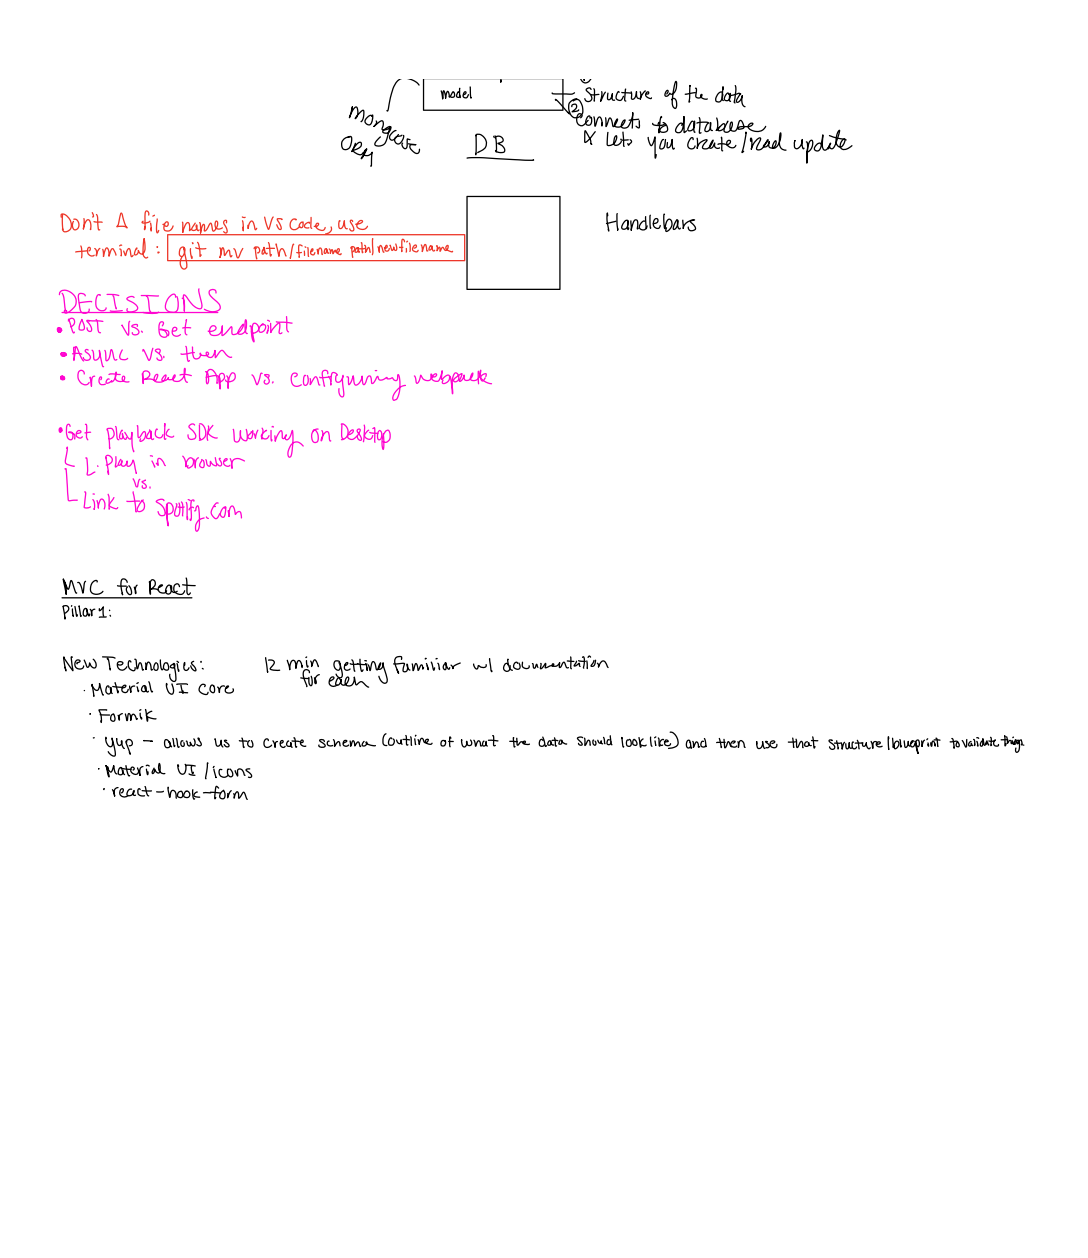 model
① Structure of the data
②
connects to database
& lets you create/read update
mongoose
ORM
DB
Handlebars
Don't Δ file names in VS Code, use
terminal: git mv path/filename path/newfilename
DECISIONS
• POST vs. Get endpoint
• Async vs. then
• Create React App vs. configuring webpack
• Get playback SDK working on Desktop
L. Play in browser
vs.
Link to Spotify.com
MVC for React
Pillar 1:
New Technologies: 12 min getting familiar w/ documentation
for each
· Material UI core
· Formik
· yup – allows us to create schema (outline of what the data should look like) and then use that structure/blueprint to validate things
· Material UI/icons
· react-hook-form